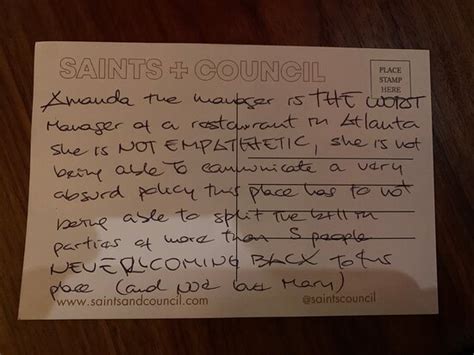 SAINTS + COUNCIL
PLACE
STAMP
HERE
Amanda the manager is THE WORST
Manager of a restaurant in Atlanta
she is NOT EMPATHETIC, she is not
being able to communicate a very
absurd policy this place has to not
being able to split the bill in
parties of more than 5 people
NEVER COMING BACK TO this
place (and NOT Mary)
www.saintsandcouncil.com
@saintscouncil